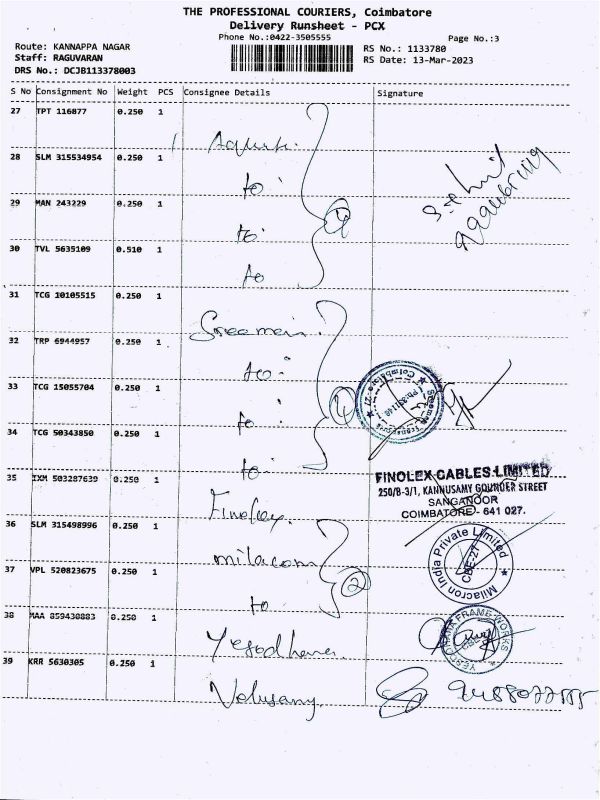 THE PROFESSIONAL COURIERS, Coimbatore
Delivery Runsheet - PCX
Phone No.:0422-3505555
Page No.:3
Route: KANNAPPA NAGAR
RS No.: 1133780
Staff: RAGUVARAN
RS Date: 13-Mar-2023
DRS No.: DCJB113378003
S No Consignment No Weight PCS Consignee Details Signature
27 TPT 116877 0.250 1
28 SLM 315534954 0.250 1 to
29 MAN 243229 0.250 1 to 4
30 TVL 5635109 0.510 1 to
31 TCG 10105515 0.250 1
32 TRP 6944957 0.250 1 to
33 TCG 15055704 0.250 1 to 4
34 TCG 50343850 0.250 1 to
35 IXM 503287639 0.250 1 Finolex
FINOLEX CABLES LIMITED
250/B-3/1, KANNUSAMY GOUNDER STREET
SANGANOOR
COIMBATORE - 641 027.
36 SLM 315498996 0.250 1 milacron
Milacron India Private Limited
CBE-27
37 VPL 520823675 0.250 1 to 2
38 MAA 859430883 0.250 1 Yesodhana
39 KRR 5630305 0.250 1 Velusamy